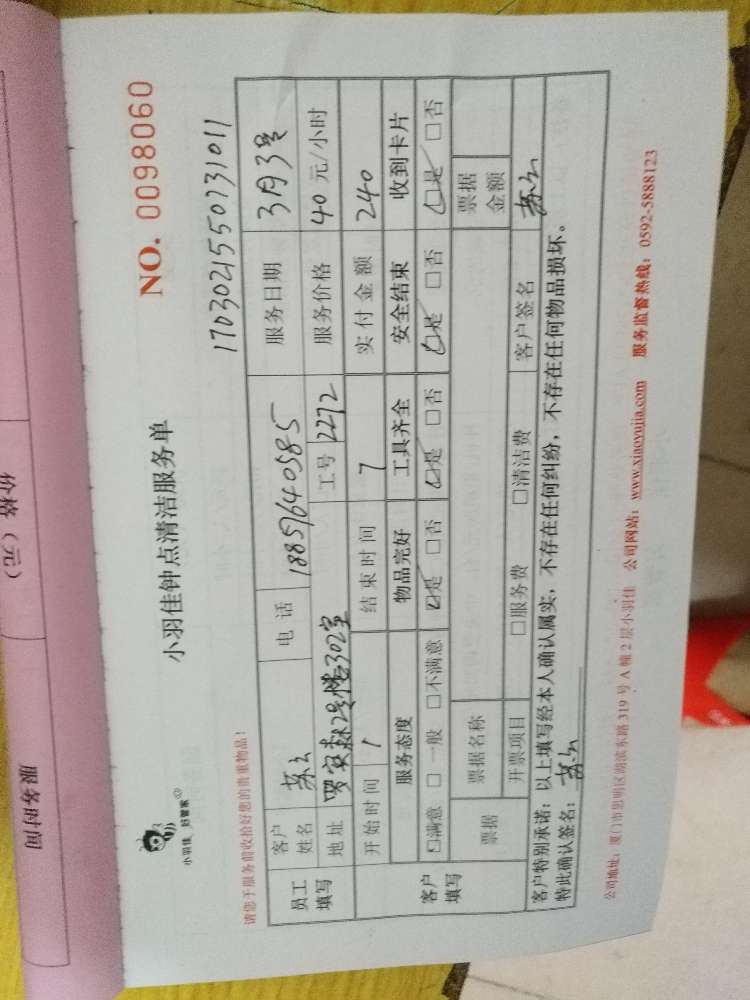 小羽佳 好管家
小羽佳钟点清洁服务单
NO. 0098060
1703021550731011
请您于服务前收拾好您的贵重物品！
员工填写 客户姓名 电话 18857640585 服务日期 3月3号
地址 2号楼302室 工号 2272 服务价格 40 元/小时
开始时间 1 结束时间 7 实付金额 240
客户填写 服务态度 物品完好 工具齐全 安全结束 收到卡片
□满意 □一般 □不满意 □是 □否 □是 □否 □是 □否 □是 □否
票据 票据名称 票据金额
开票项目 □服务费 □清洁费 客户签名
客户特别承诺：以上填写经本人确认属实，不存在任何纠纷，不存在任何物品损坏。
特此确认签名：
公司地址：厦门市思明区湖滨东路 319 号 A 幢 2 层小羽佳 公司网站：www.xiaoyujia.com 服务监督热线：0592-5888123
价格（元）
服务时间